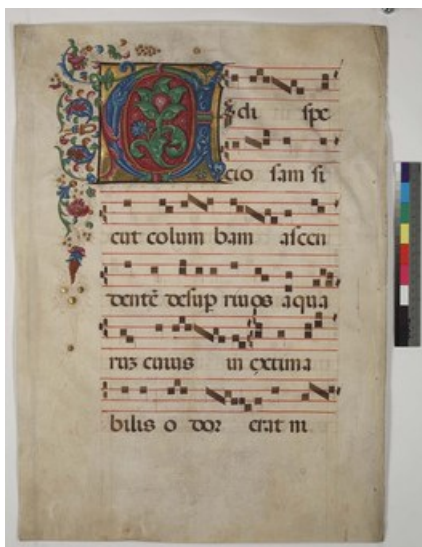 Vidi spe
cio sam si
cut colum bam ascen
dentē desup rivos aqua
ruʒ cuius in extima
bilis o dor erat ni